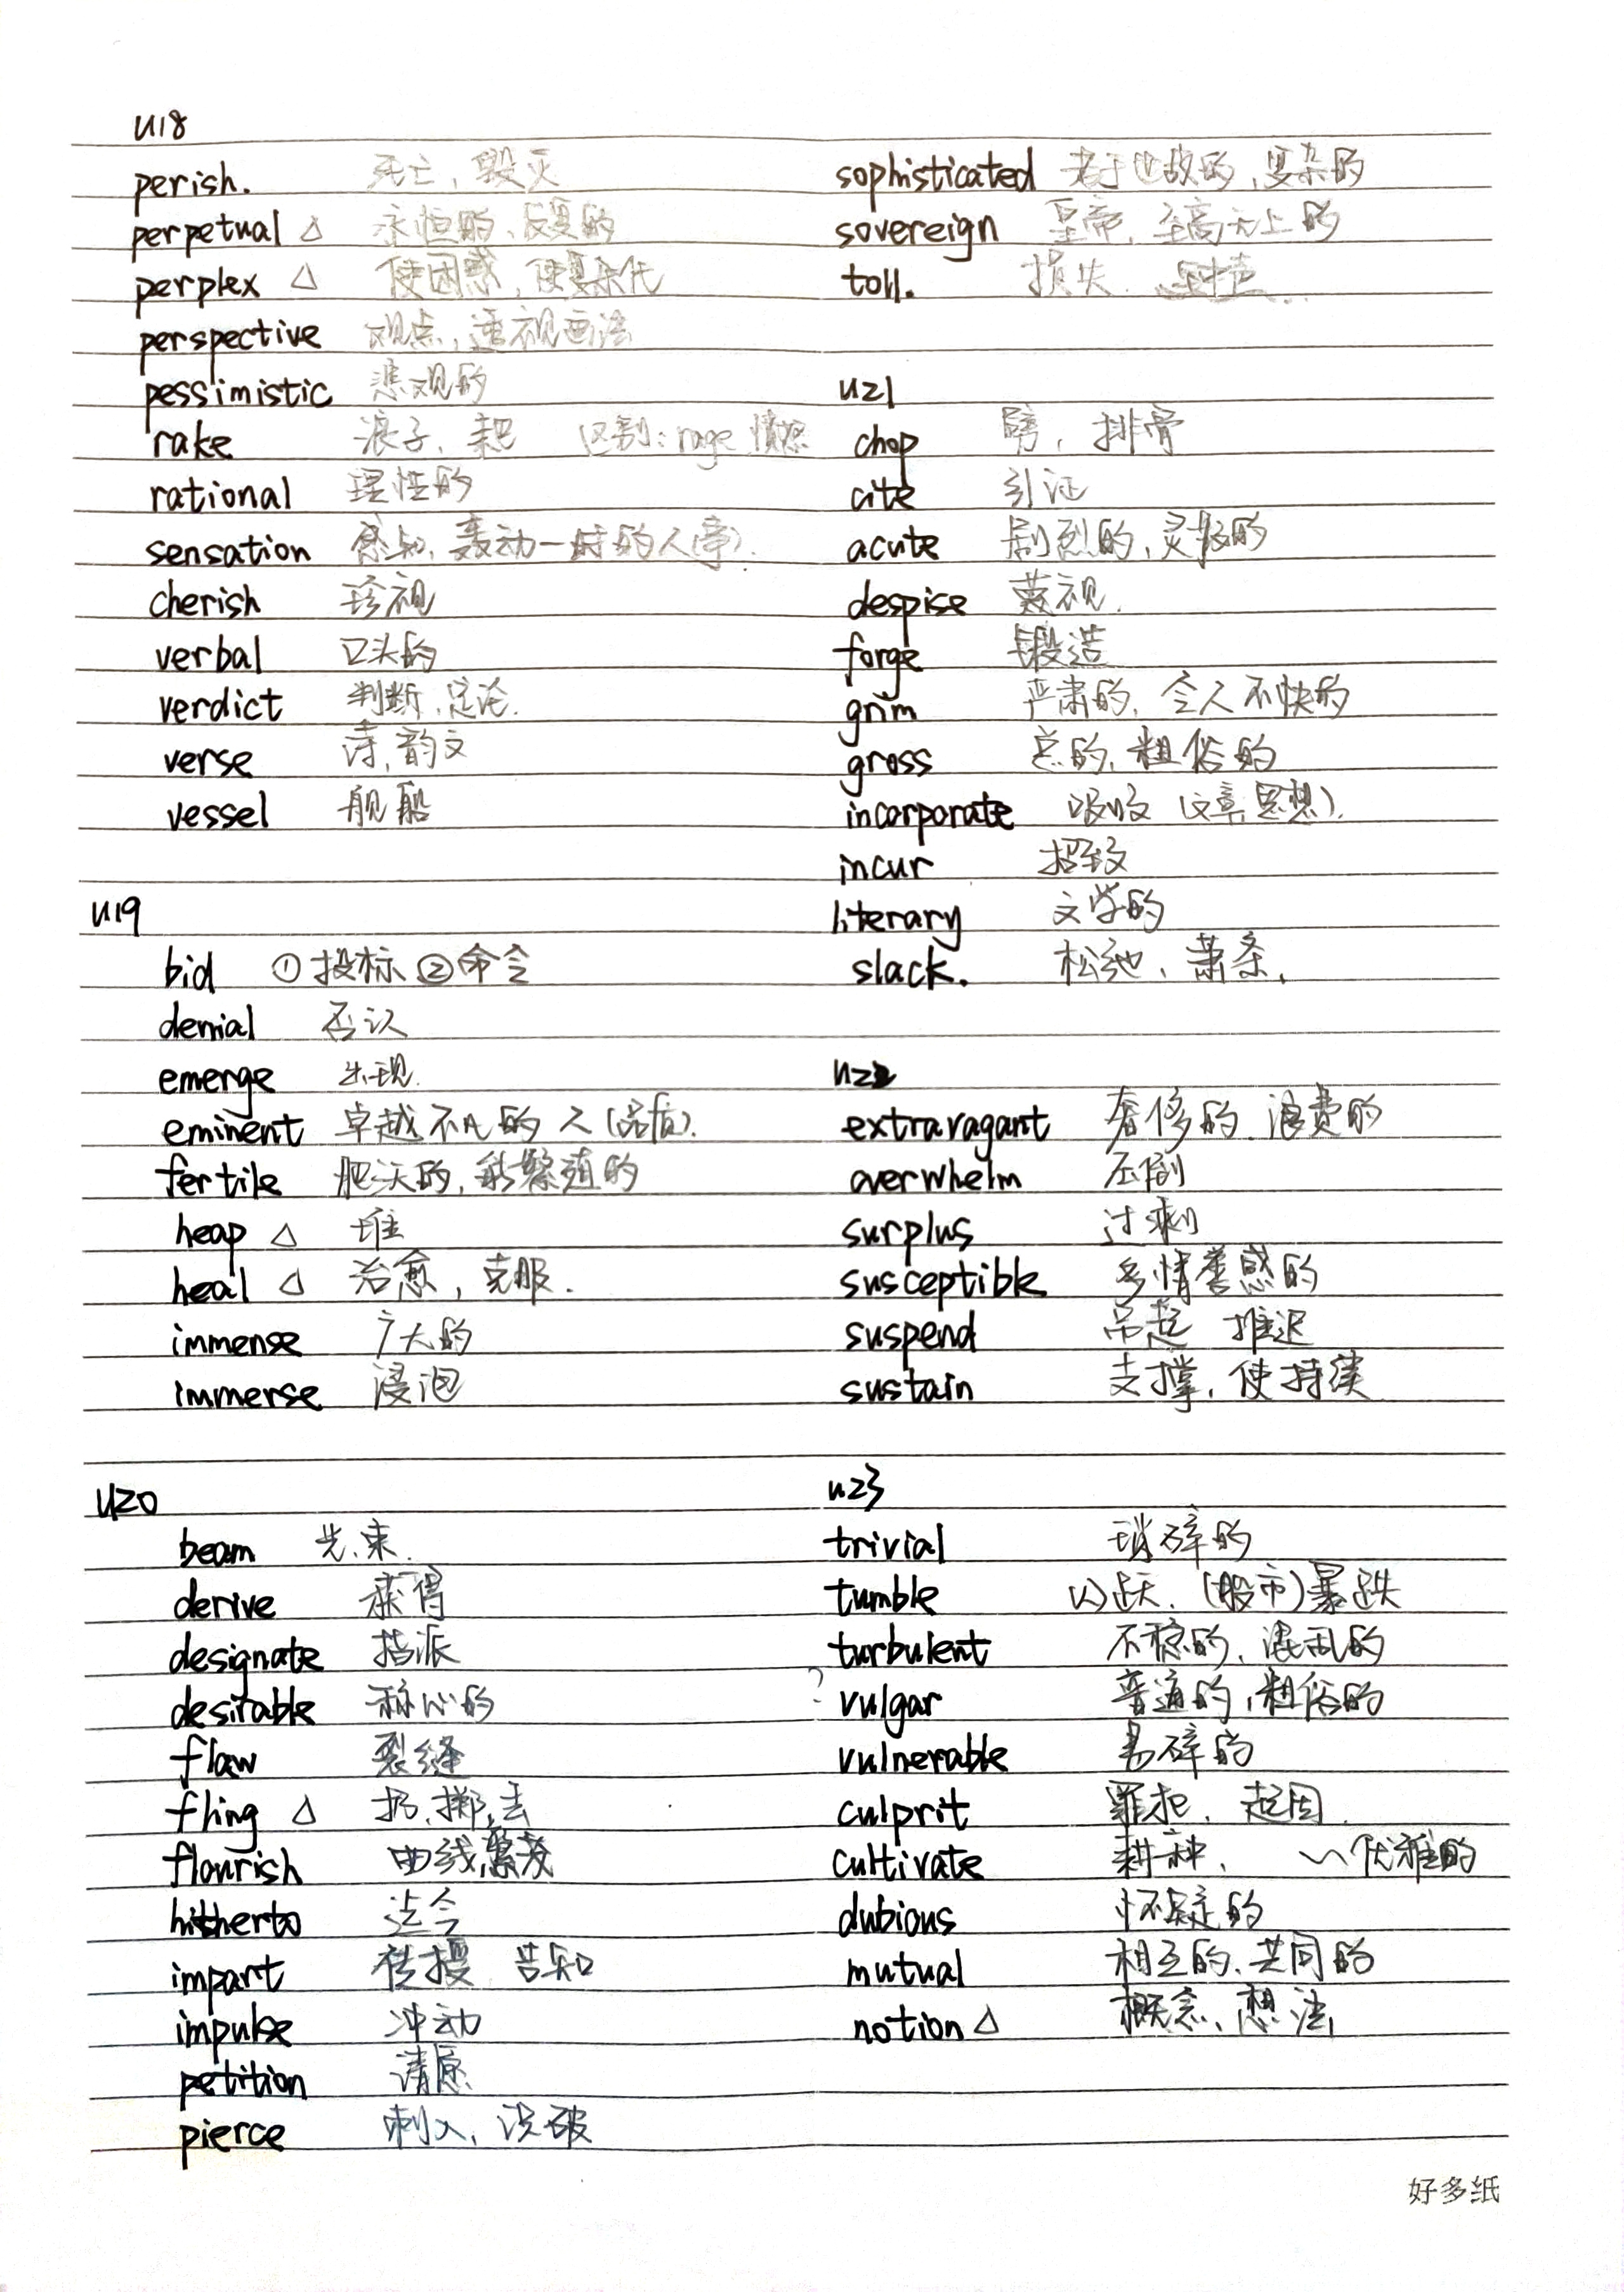 U18
perish. 死亡, 毁灭
perpetual △ 永恒的、反复的
perplex △ 使困惑, 使复杂化
perspective 观点, 透视画法
pessimistic 悲观的
rake 浪子、耙 区别: rage 愤怒
rational 理性的
sensation 感知, 轰动一时的人(事).
cherish 珍视
verbal 口头的
verdict 判断, 定论.
verse 诗, 韵文
vessel 舰船
U19
bid ①投标 ②命令
denial 否认
emerge 出现.
eminent 卓越不凡的 人(品质).
fertile 肥沃的, 能繁殖的
heap △ 堆
heal △ 治愈, 克服.
immense 广大的
immerse 浸泡
U20
beam 光束.
derive 获得
designate 指派
desirable 称心的
flaw 裂缝
fling △ 扔, 掷, 去
flourish 曲线, 繁茂
hitherto 迄今
impart 传授 告知
impulse 冲动
petition 请愿
pierce 刺入、识破
sophisticated 老于世故的, 复杂的
sovereign 皇帝, 至高无上的
toll. 损失.
U21
chop 劈, 排骨
cite 引证
acute 剧烈的, 灵敏的
despise 蔑视.
forge 锻造
grim 严肃的, 令人不快的
gross 总的, 粗俗的
incorporate 吸收 (文章思想).
incur 招致
literary 文学的
slack. 松弛、萧条.
U22
extravagant 奢侈的、浪费的
overwhelm 压倒
surplus 过剩
susceptible 多情善感的
suspend 吊起 推迟
sustain 支撑, 使持续
U23
trivial 琐碎的
tumble 跃. (股市)暴跌
turbulent 不稳的, 混乱的
? vulgar 普通的, 粗俗的
vulnerable 易碎的
culprit 罪犯, 起因.
cultivate 耕种, ~优雅的
dubious 怀疑的
mutual 相互的, 共同的
notion △ 概念、想法,
好多纸